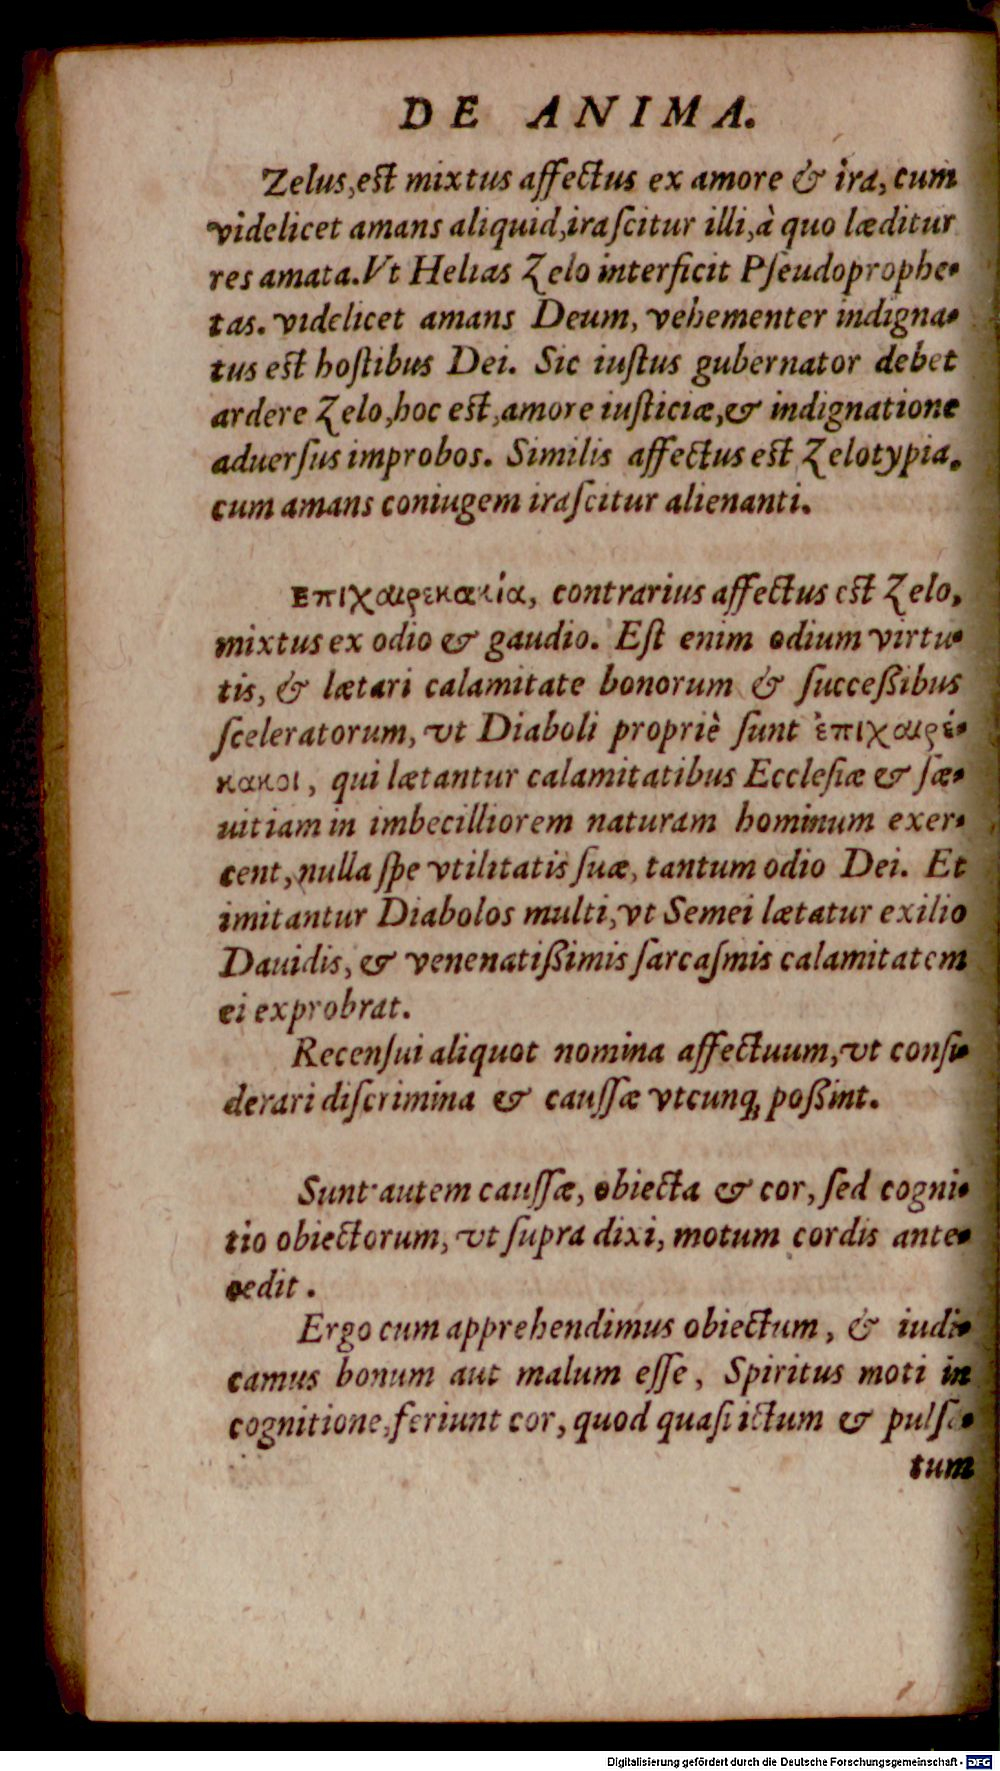 DE ANIMA.
Zelus, est mixtus affectus ex amore & ira, cum
videlicet amans aliquid, irascitur illi, à quo læditur
res amata. Vt Helias Zelo interficit Pseudoprophe-
tas. videlicet amans Deum, vehementer indigna-
tus est hostibus Dei. Sic iustus gubernator debet
ardere Zelo, hoc est, amore iusticiæ, & indignatione
aduersus improbos. Similis affectus est Zelotypia,
cum amans coniugem irascitur alienanti.
Επιχαιρεκακία, contrarius affectus est Zelo,
mixtus ex odio & gaudio. Est enim odium virtu-
tis, & lætari calamitate bonorum & succeßibus
sceleratorum, vt Diaboli propriè sunt ἐπιχαιρέ-
κακοι, qui lætantur calamitatibus Ecclesiæ & sæ-
uitiam in imbecilliorem naturam hominum exer-
cent, nulla spe vtilitatis suæ, tantum odio Dei. Et
imitantur Diabolos multi, vt Semei lætatur exilio
Dauidis, & venenatißimis sarcasmis calamitatem
ei exprobrat.
Recensui aliquot nomina affectuum, vt consi-
derari discrimina & caussæ vtcunq; poßint.
Sunt autem caussæ, obiecta & cor, sed cogni-
tio obiectorum, vt supra dixi, motum cordis ante-
cedit.
Ergo cum apprehendimus obiectum, & iudi-
camus bonum aut malum esse, Spiritus moti in
cognitione, feriunt cor, quod quasi ictum & pulsa-
tum
Digitalisierung gefördert durch die Deutsche Forschungsgemeinschaft - DFG